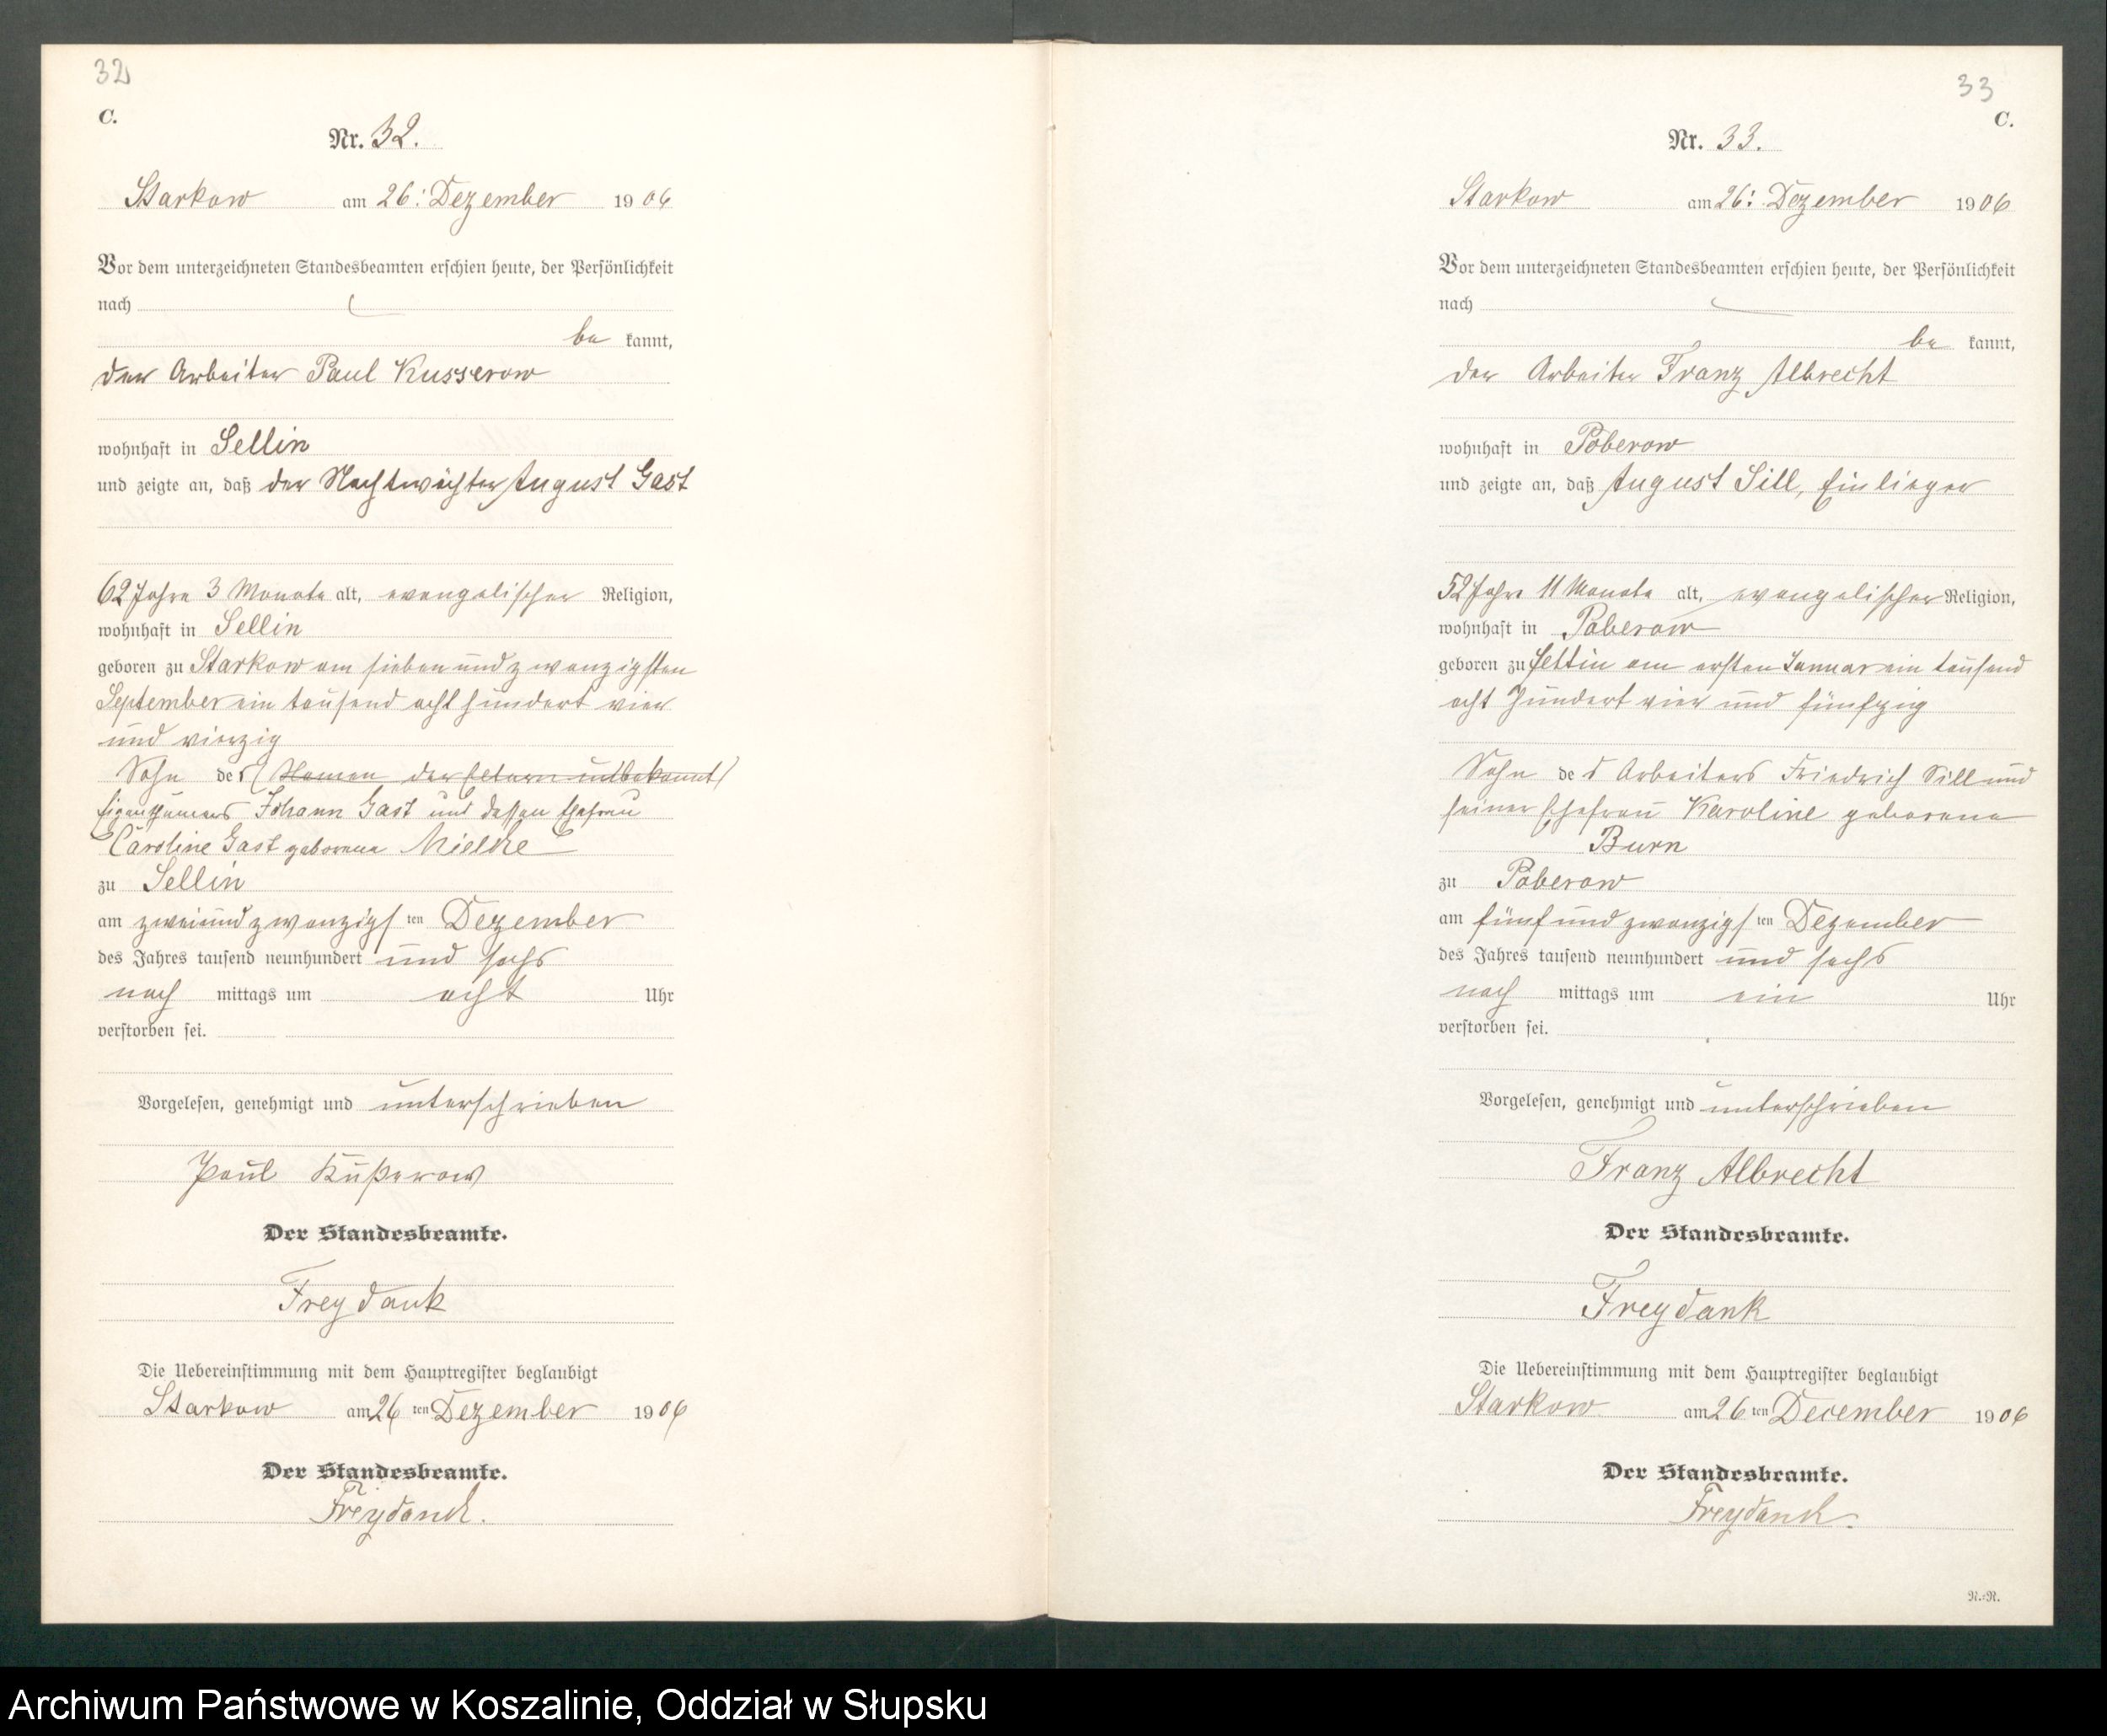 32
C.
Nr. 32.
Starkow am 26: Dezember 1906
Vor dem unterzeichneten Standesbeamten erschien heute, der Persönlichkeit
nach
be kannt,
der Arbeiter Paul Kusserow
wohnhaft in Sellin
und zeigte an, daß der Nachtwächter August Gast
62 Jahre 3 Monate alt, evangelischer Religion,
wohnhaft in Sellin
geboren zu Starkow am siebenundzwanzigsten
September ein tausend acht hundert vier
und vierzig
Sohn des (Namen der Eltern unbekannt)
Eigenthümers Johann Gast und dessen Ehefrau
Caroline Gast geborene Mielcke
zu Sellin
am zweiundzwanzigsten Dezember
des Jahres tausend neunhundert und sechs
nach mittags um acht Uhr
verstorben sei.
Vorgelesen, genehmigt und unterschrieben
Paul Kußerow
Der Standesbeamte.
Freydank
Die Uebereinstimmung mit dem Hauptregister beglaubigt
Starkow am 26 ten Dezember 1906
Der Standesbeamte.
Freydank.
33
C.
Nr. 33.
Starkow am 26: Dezember 1906
Vor dem unterzeichneten Standesbeamten erschien heute, der Persönlichkeit
nach
be kannt,
der Arbeiter Franz Albrecht
wohnhaft in Poberow
und zeigte an, daß August Sill, Einlieger
52 Jahre 11 Monate alt, evangelischer Religion,
wohnhaft in Poberow
geboren zu am ersten Januar ein tausend
acht hundert vier und fünfzig
Sohn des Arbeiters Friedrich Sill und
seiner Ehefrau Karoline geborene
Burn
zu Poberow
am fünfundzwanzigsten Dezember
des Jahres tausend neunhundert und sechs
nach mittags um ein Uhr
verstorben sei.
Vorgelesen, genehmigt und unterschrieben
Franz Albrecht
Der Standesbeamte.
Freydank
Die Uebereinstimmung mit dem Hauptregister beglaubigt
Starkow am 26 ten December 1906
Der Standesbeamte.
Freydank.
N.=N.
Archiwum Państwowe w Koszalinie, Oddział w Słupsku